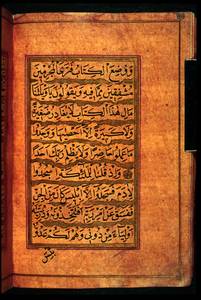 ووضع الكتاب فترى المجرمين
مشفقين مما فيه ويقولون يويلتنا
مال هذا الكتاب لا يغادر صغيرة
ولا كبيرة الا احصيها ووجدوا
ما عملوا حاضرا ولا يظلم ربك احدا
واذ قلنا للملئكة اسجدوا
لادم فسجدوا الا ابليس كان من الجن
ففسق عن امر ربه افتتخذونه وذريته
اولياء من دوني وهم لكم عدو
بئس